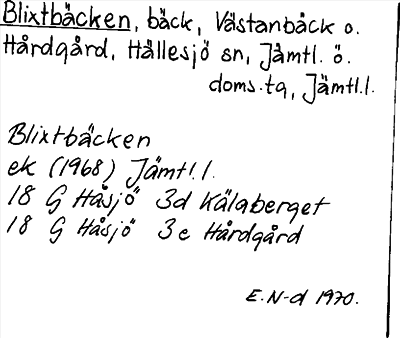 Blixtbäcken, bäck, Västanbäck o.
Hårdgård, Hällesjö sn, Jämtl. ö.
doms.tg, Jämtl.l.
Blixtbäcken
ek (1968) Jämtl.l.
18 G Håsjö 3d Kälaberget
18 G Håsjö 3e Hårdgård
E.N-d 1970.